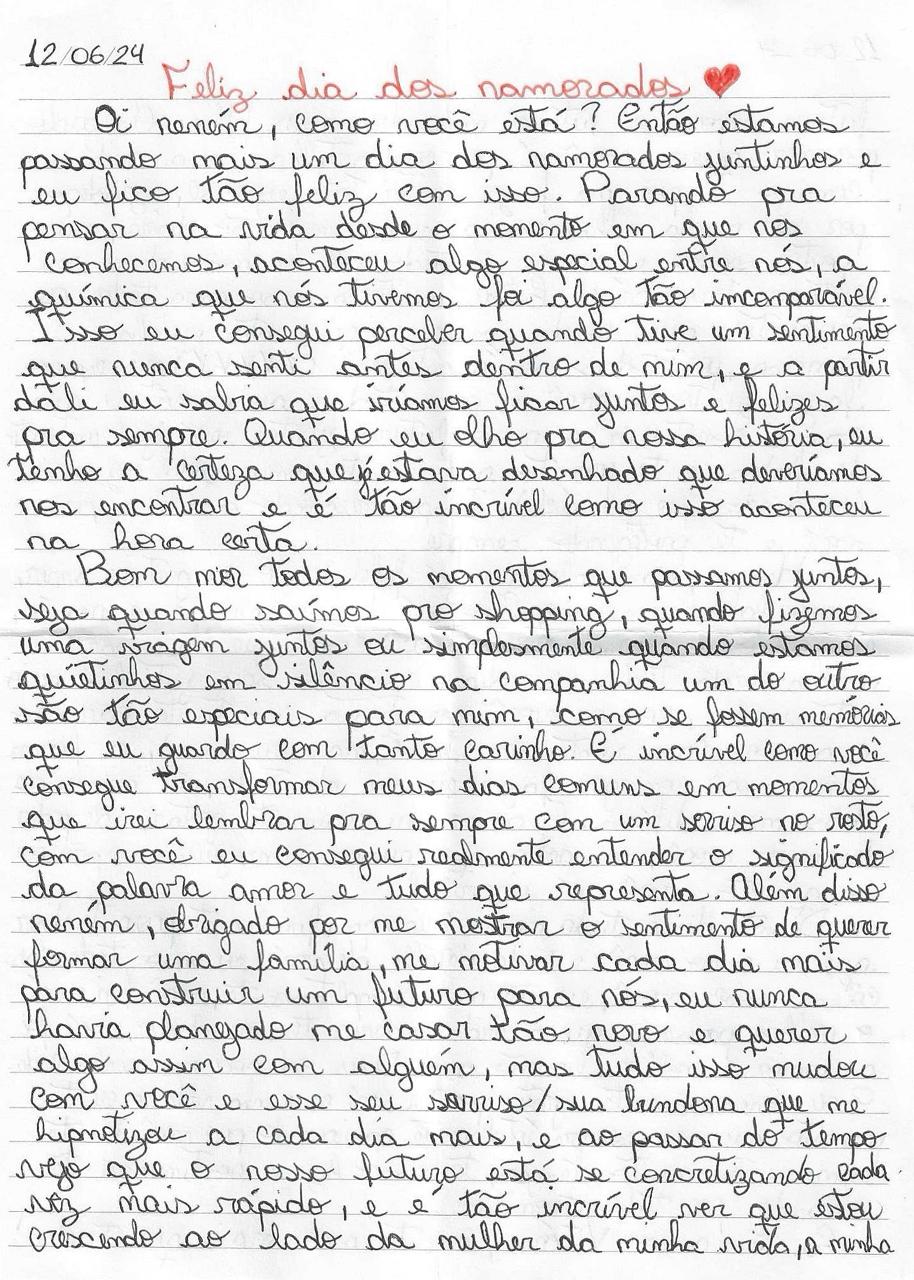 12/06/24
Feliz dia dos namorados
Oi neném, como você está? Então estamos
passando mais um dia dos namorados juntinhos e
eu fico tão feliz com isso. Parando pra
pensar na vida desde o momento em que nos
conhecemos, aconteceu algo especial entre nós, a
química que nós tivemos foi algo tão imcomparável.
Isso eu consegui perceber quando tive um sentimento
que nunca senti antes dentro de mim, e a partir
dali eu sabia que iríamos ficar juntos e felizes
pra sempre. Quando eu olho pra nossa história, eu
tenho a certeza que já estava desenhado que deveríamos
nos encontrar e é tão incrível como isso aconteceu
na hora certa.
Bom mor todos os momentos que passamos juntos,
seja quando saímos pro shopping, quando fizemos
uma viagem juntos ou simplesmente quando estamos
quietinhos em silêncio na companhia um do outro
são tão especiais para mim, como se fossem memórias
que eu guardo com tanto carinho. É incrível como você
consegue transformar meus dias comuns em momentos
que irei lembrar pra sempre com um sorriso no rosto,
com você eu consegui realmente entender o significado
da palavra amor e tudo que representa. Além disso
neném, obrigado por me mostrar o sentimento de querer
formar uma família, me motivar cada dia mais
para construir um futuro para nós, eu nunca
havia planejado me casar tão novo e querer
algo assim com alguém, mas tudo isso mudou
com você e esse seu sorriso/sua bundona que me
hipnotizou a cada dia mais, e ao passar do tempo
vejo que o nosso futuro está se concretizando cada
vez mais rápido, e é tão incrível ver que estou
crescendo ao lado da mulher da minha vida, a minha